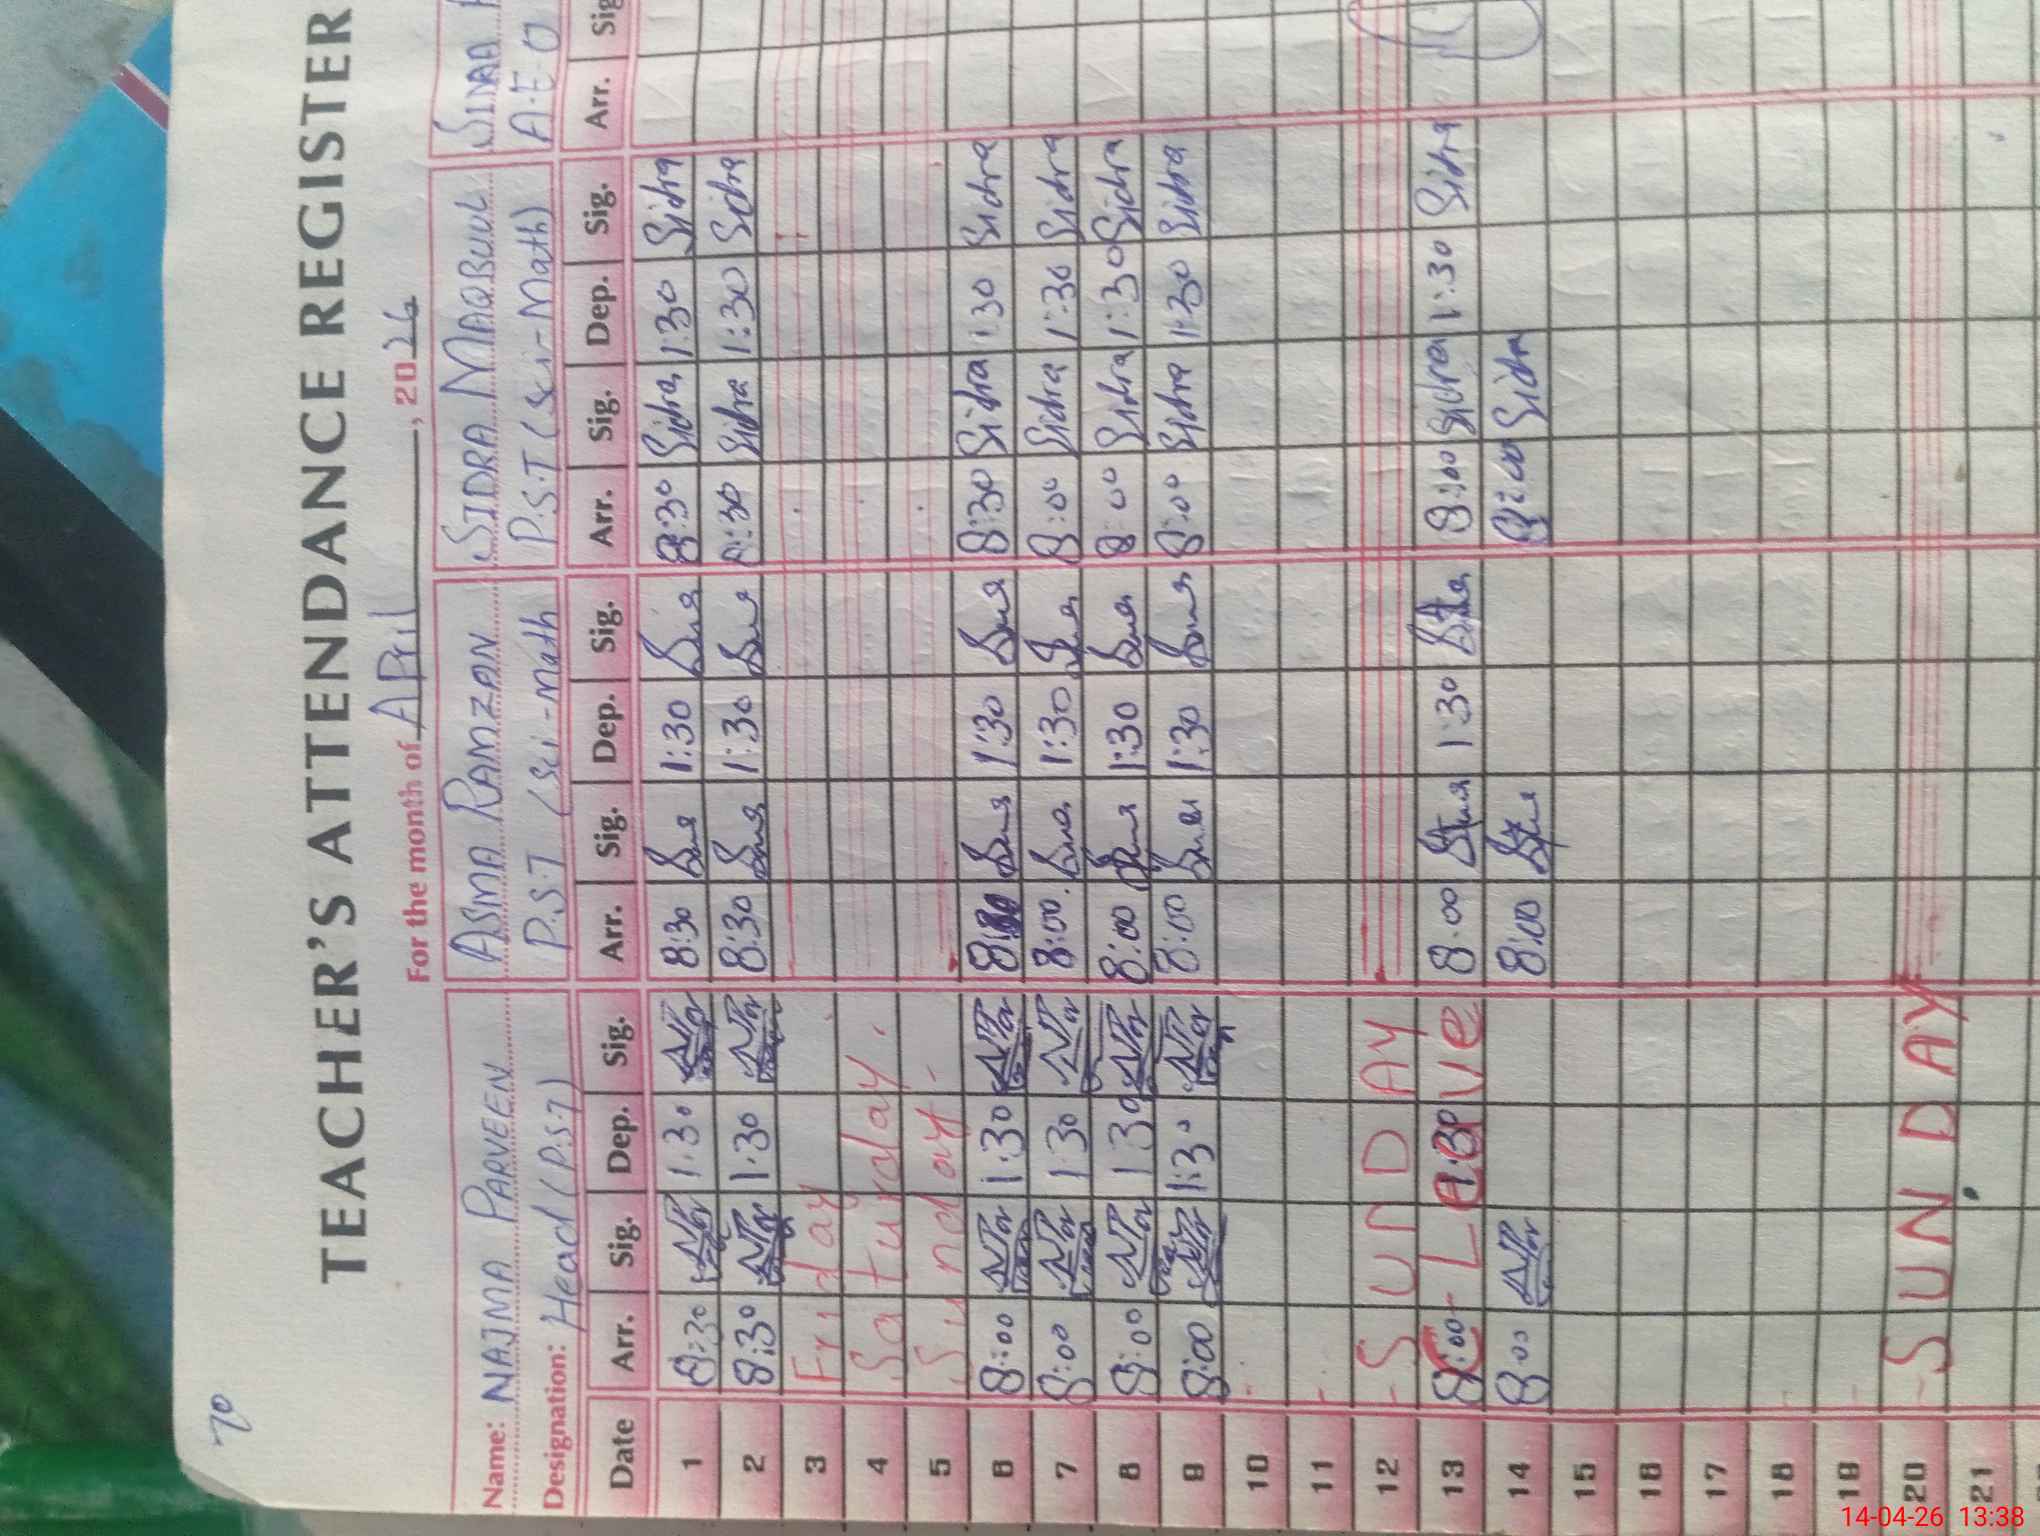 70
TEACHER'S ATTENDANCE REGISTER
For the month of APril, 2026
Name: NAJMA PARVEEN ASMA RAMZAN SIDRA MAQBUUL
Designation: Head (P.S.T) P.S.T (Sci-Math P.S.T (Sci-Math) A.E.O
Date Arr. Sig. Dep. Sig. Arr. Sig. Dep. Sig. Arr. Sig. Dep. Sig. Arr. Sig
1 8:30 1:30 8:30 1:30 8:30 Sidra 1:30 Sidra
2 8:30 1:30 8:30 1:30 8:30 Sidra 1:30 Sidra
3 Friday
4 Saturday.
5 Sunday-
6 8:00 1:30 1:30 8:30 Sidra 1:30 Sidra
7 8:00 1:30 8:00. 1:30 8:00 Sidra 1:30 Sidra
8 8:00 1:30 8:00 1:30 8:00 Sidra 1:30 Sidra
9 8:00 1:30 8:00 1:30 8:00 Sidra 1:30 Sidra
10
11
12 SUNDAY
13 8:00 - Leave 8:00 1:30 8:00 Sidra 1:30 Sidra
14 8:00 8:00 8:00 Sidra
15
16
17
18
19
20 SUNDAY
21
14-04-26 13:38